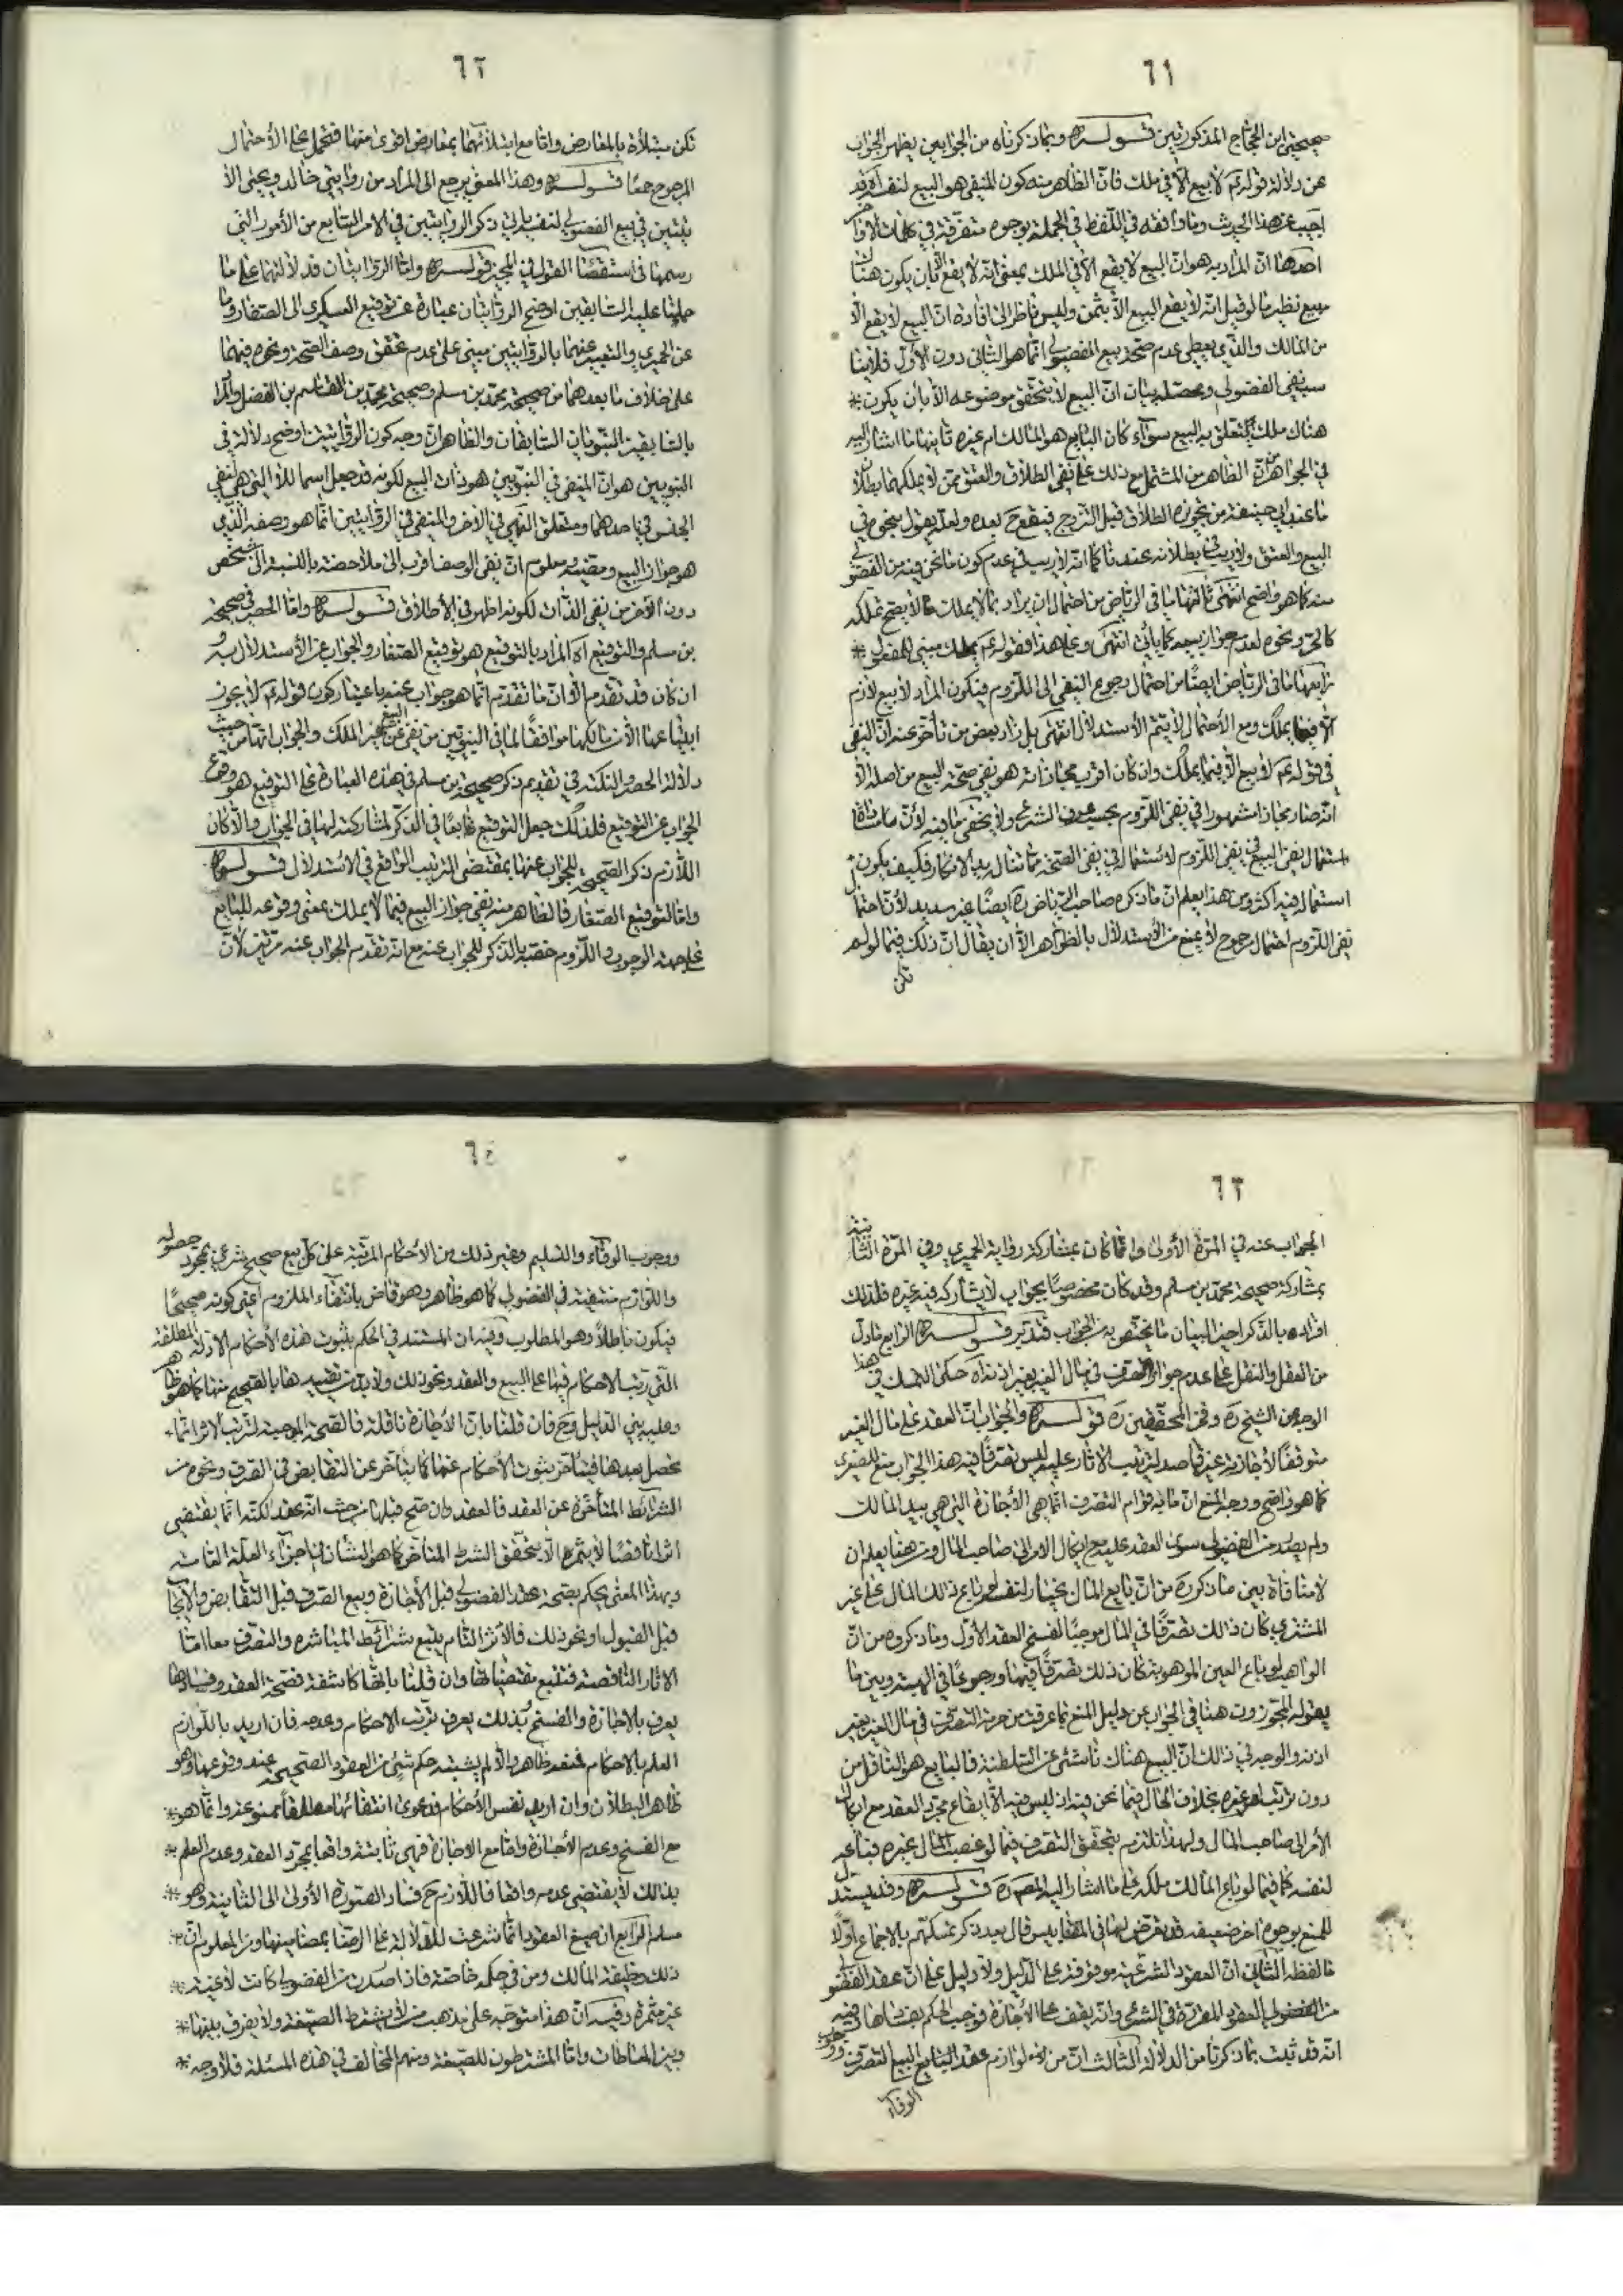 ٦١
صحيحتي ابن الحجاج المذكورتين قوله ره وبما ذكرناه من الجوابين يظهر الجواب
عن دلالة قوله ع لا بيع الا في ملك فان الظاهر منه كون المنفي هو البيع لنفسه آه قد
اجيب عن هذا الحديث وما وافقه في اللفظ في الجملة بوجوه متفرقة في كلمات
احدها ان المراد به هو ان البيع لا يقع الا في الملك بمعنى انه لا يقع الا بان يكون هناك
مبيع نظير ما لو قيل انه لا يقع البيع الا بثمن وليس ناظرا الى افادة ان البيع لا يقع الا
من المالك والذي يعطي عدم صحة بيع الفضولي انما هو الثاني دون الاول فلا ينا
سب نفي الفضولي ومحصله بيان ان البيع لا يتحقق موضوعه الا بان يكون
هناك ملك يتعلق به البيع سواء كان البايع هو المالك ام غيره ثانيها ما اشار اليه
في الجواهر من ان الظاهر من المشتمل مع ذلك على نفي الطلاق والعتق ممن لا يملكهما بطلان
ما عند ابي حنيفة من تجويزه الطلاق قبل التزوج فيقع ح بعده ولعله يقول بنحوه في
البيع والعتق ولا ريب في بطلانه عندنا كما انه لا ريب في عدم كون ما نحن فيه من الفضولي
منه كما هو واضح انتهى ثالثها ما في الرياض من احتمال ان يراد بما لا يملك ما لا يصح تملكه
كالحر ونحوه لعدم جواز بيعه كما يأتي انتهى وعلى هذا فقوله ع يملك مبني للمفعول
رابعها ما في الرياض ايضا من احتمال رجوع النفي الى اللزوم فيكون المراد لا بيع لازم
الا فيما يملك ومع الاحتمال لا يتم الاستدلال انتهى بل زاد بعض من تأخر عنه ان النفي
في قوله ع لا بيع الا فيما يملك وان كان اقرب مجازاته هو نفي صحة البيع من اصله الا
انه صار مجازا مشهورا في نفي اللزوم بحسب عرف الشرع ولا يخفى ما فيه لأن
استعمال نفي البيع في نفي اللزوم لاستعماله في نفي الصحة مما تناله يد الانكار فكيف يكون
استعماله فيه اكثر ومن هذا يعلم ان ما ذكره صاحب الرياض ره ايضا غير سديد لأن احتما
نفي اللزوم احتمال مرجوح لا يمنع من الاستدلال بالظواهر الا ان يقال ان ذلك فيما لو لم
تكن
٦٢
تكن مبتلاة بالمعارض واما مع ابتلائها بمعارض اقوى منها فتحمل على الاحتمال
المرجوح جمعا قوله ره وهذا المعنى يرجع الى المراد من روايتي خالد ويحيى الآ
تيتين في بيع الفضولي لنفسه ذكر الروايتين في الامر السابع من الأمور التي
رسمها في استقصاء القول في المجيز قوله ره واما الروايتان فدلالتهما على ما
حملنا عليه السابقين اوضح الروايتان عبارة عن توقيع العسكري الى الصفار وما
عن الحميري والتعبير عنهما بالروايتين مبني على عدم تحقق وصف الصحة ونحوه فيهما
على خلاف ما بعدهما من صحيحة محمد بن مسلم وصحيحة محمد بن القاسم بن الفضل والمراد
بالسابقين النبويان السابقان والظاهر ان وجه كون الروايتين اوضح دلالة في
النبويين هو ان المنفي في النبويين هو ذات البيع لكونه قد جعل اسما للا التي هي لنفي
الجنس في احدهما ومتعلق النهي في الاخر والمنفي في الروايتين انما هو وصفه الذي
هو جواز البيع ومضيه ومعلوم ان نفي الوصف اقرب الى ملاحظته بالنسبة الى شخص
دون الآخر من نفي الذات لكونه اظهر في الاطلاق قوله ره واما الحصر في صحيحة
بن مسلم والتوقيع آه المراد بالتوقيع هو توقيع الصفار والجواب عن الاستدلال به
ان كان قد تقدم الا ان ما تقدم انما هو جواب عنه باعتبار كون قوله ع لا يجوز
ابتياعها الا من مالكها موافقا لما في النبويين من نفي البيع عن غير الملك والجواب انها من حيث
دلالة الحصر والنكتة في تقديم ذكر صحيحة بن مسلم في هذه العبارة على التوقيع هو وقوع
الجواب عن التوقيع فلذلك جعل التوقيع تابعا في الذكر لمشاركته لها في الجواب والا كان
اللازم ذكر الصحيحة للجواب عنها بمقتضى الترتيب الواقع في الاستدلال قوله ره
واما التوقيع الصفار فالظاهر منه نفي جواز البيع فيما لا يملك بمعنى وقوعه للبايع
على جهة الوجوب واللزوم خصه بالذكر للجواب عنه مع انه تقدم الجواب عنه مرتين لأن
٦٣
الجواب عنه في المرة الأولى وانما كان بمشاركة رواية الحميري وفي المرة الثانية
بمشاركة صحيحة محمد بن مسلم وقد كان مخصوصا بجواب لا يشاركه فيه غيره فلذلك
افرده بالذكر اخيرا لبيان ما يختص به من الجواب فتدبر قوله ره الرابع ما دل
من العقل والنقل على عدم جواز التصرف في مال الغير بغير اذنه آه حكى التمسك في هذا
الوجه عن الشيخ ره وفخر المحققين ره قوله ره والجواب ان العقد على مال الغير
متوقفا لاجازته غير قاصد لترتب الآثار عليه ليس تصرفا فيه هذا الجواب منع للصغرى
كما هو واضح ووجه المنع ان ما به قوام التصرف انما هي الأجازة التي هي بيد المالك
ولم يصدر من الفضولي سوى العقد عليه مع ايكال الامر الى صاحب المال ومن هنا يعلم ان
لا منافاة بين ما ذكروه من ان بايع المال بخيار لنفسه لو باع ذلك المال على غير
المشتري كان ذلك تصرفا في المال موجبا لفسخ العقد الأول وما ذكروه من ان
الواهب لو باع العين الموهوبة كان ذلك تصرفا فيها ورجوعا في الهبة وبين ما
يقوله المجوزون هنا في الجواب عن دليل المنع بما عرفت من حرمة التصرف في مال الغير بغير
اذنه والوجه في ذلك ان البيع هناك ناشئ عن السلطنة فالبايع هو الناقل من
دون ترتب امر غيره بخلاف الحال فيما نحن فيه اذ ليس فيه الا ايقاع مجرد العقد مع ايكال
الأمر الى صاحب المال ولهذا نلتزم بتحقق التصرف فيما لو غصب مال غيره فباعه
لنفسه كما فيما لو باع المالك ملكه على ما اشار اليه المصنف ره قوله ره وقد يستدل
للمنع بوجوه اخر ضعيفة قد تعرض لها في المقابيس قال بعد ذكر تمسكهم بالاجماع اولا
ما لفظه الثاني ان العقود الشرعية موقوفة على الدليل ولا دليل على ان عقد الفضولي
من الفضولي العقود المقررة في الشرع وانه يقف على الأجازة فوجب الحكم بفسادها وفيه
انه قد ثبت بما ذكرنا من الدلالة الثالث ان من لوازم عقد البايع البيع التصرف ووجوب
الوفاء
٦٤
ووجوب الوفاء والتسليم وغير ذلك من الأحكام المرتبة على كل بيع صحيح شرعي بمجرد حصوله
واللوازم منتفية في الفضولي كما هو ظاهر وهو قاض بانتفاء الملزوم اعني كونه صحيحا
فيكون باطلا وهو المطلوب وفيه ان المستند في الحكم بثبوت هذه الأحكام الادلة المطلقة
التي رتب الأحكام فيها على البيع والعقد ونحو ذلك ولا بد من تقييدها بالصحيح منها كما هو ظاهر
وعليه بني الدليل وح فان قلنا بان الأجازة ناقلة فالصحة الموجبة لترتب الاثر انما
تحصل بعدها فيتأخر ثبوت الأحكام عنها كما يتأخر عن التقابض في الصرف ونحوه من
الشرائط المتأخرة عن العقد فالعقد وان صح قبلها من حيث انه عقد لكنه انما يقتضي
اثرا ناقصا لا يثمره الا بتحقق الشرط المتأخر كما هو الشأن في اجزاء العلة التامة
وبهذا المعنى يحكم بصحة عقد الفضولي قبل الأجازة وبيع الصرف قبل التقابض والايجاب
قبل القبول او نحو ذلك فالأثر التام يتبع شرائط المباشرة والتصرف معا اما
الآثار الناقصة فتتبع مقتضياتها وان قلنا بانها كاشفة فصحة العقد وفسادها
يعرف بالاجازة والفسخ بذلك يعرف ترتب الأحكام وعدمه فان اريد باللوازم
العلم بالأحكام فمنعه ظاهر والا لم يثبت حكم شيئ من العقود الصحيحة عند وقوعها وهو
ظاهر البطلان وان اريد نفس الأحكام فدعوى انتفائها مطلقا ممنوعة وانما هو
مع الفسخ وعدم الأجازة واما مع الاجازة فهي ثابتة واقعا بمجرد العقد وعدم العلم
بذلك لا يقتضي عدمه واقعا فاللازم ح فساد الصورة الأولى الى الثانية وهو
مسلم الرابع ان صيغ العقود انما شرعت للدلالة على الرضا بمضامينها ومن المعلوم ان
ذلك وظيفة المالك ومن في حكمه خاصة فاذا صدرت من الفضولي كانت لاغية
غير مثمرة وفيه ان هذا متوجه على مذهب من لا يشترط الصيغة ولا يفرق بينها
وبين المعاطات واما المشترطون للصيغة ومنهم المخالف في هذه المسئلة فلا وجه